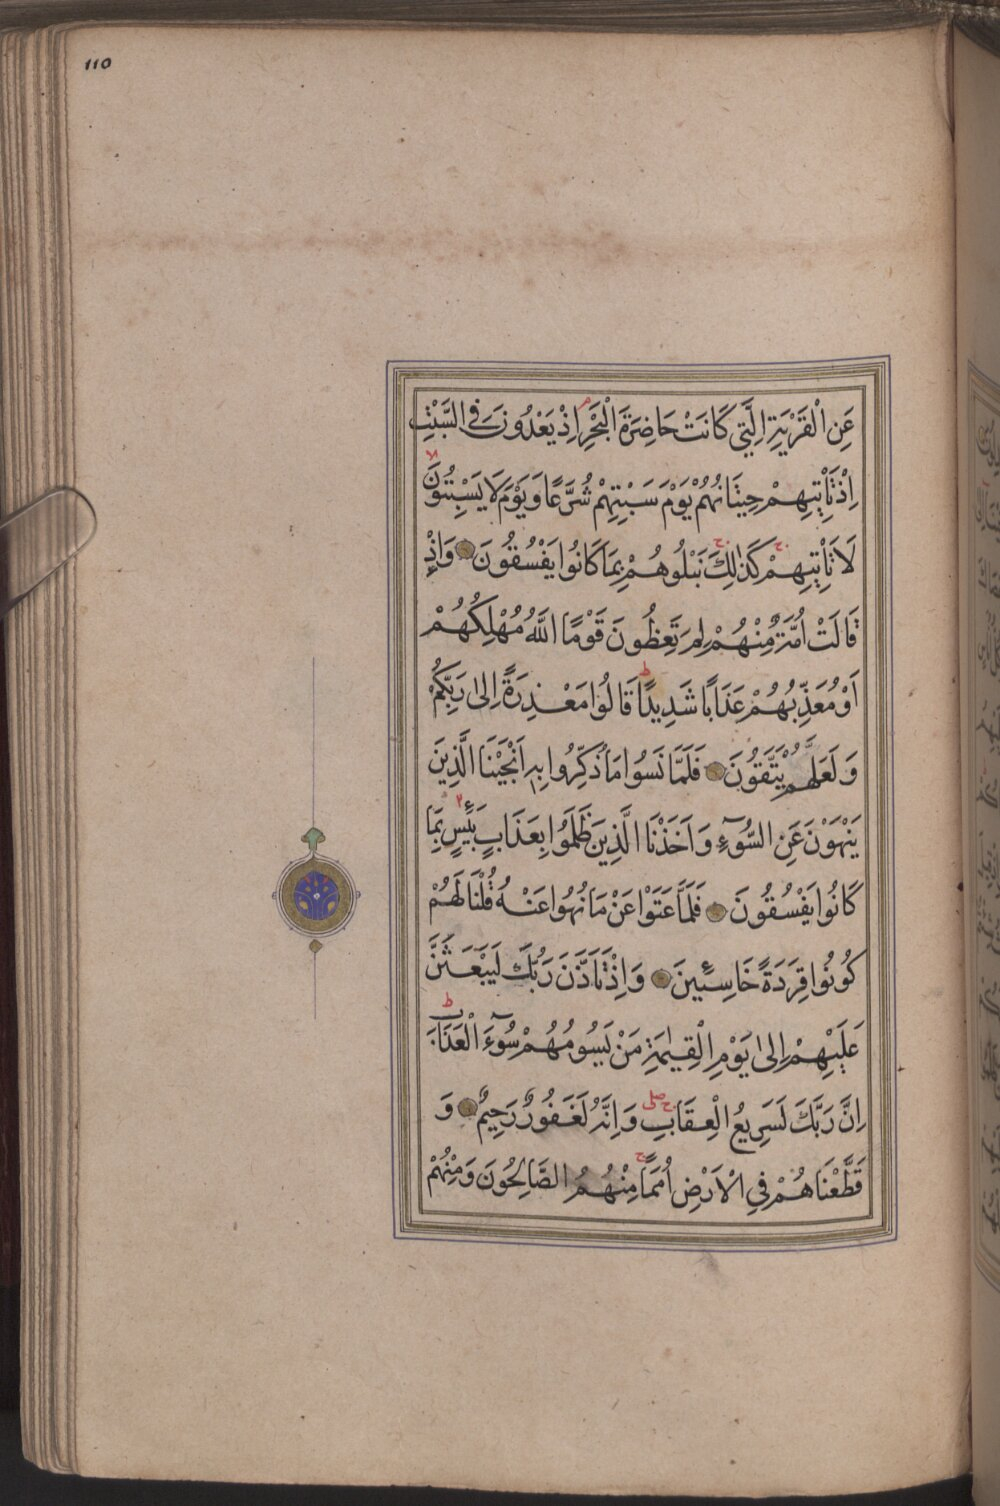 110
عَنِ الْقَرْيَةِ الَّتِي كَانَتْ حَاضِرَةَ الْبَحْرِ اِذْ يَعْدُونَ فِي السَّبْتِ
اِذْ تَأْتِيهِمْ حِيتَانُهُمْ يَوْمَ سَبْتِهِمْ شُرَّعًا وَيَوْمَ لَا يَسْبِتُونَ
لَا تَأْتِيهِمْ كَذٰلِكَ نَبْلُوهُمْ بِمَا كَانُوا يَفْسُقُونَ وَاِذْ
قَالَتْ اُمَّةٌ مِنْهُمْ لِمَ تَعِظُونَ قَوْمًا اللّٰهُ مُهْلِكُهُمْ
اَوْ مُعَذِّبُهُمْ عَذَابًا شَدِيدًا قَالُوا مَعْذِرَةً اِلٰى رَبِّكُمْ
وَلَعَلَّهُمْ يَتَّقُونَ فَلَمَّا نَسُوا مَا ذُكِّرُوا بِهِ اَنْجَيْنَا الَّذِينَ
يَنْهَوْنَ عَنِ السُّوٓءِ وَاَخَذْنَا الَّذِينَ ظَلَمُوا بِعَذَابٍ بَئِيسٍ بِمَا
كَانُوا يَفْسُقُونَ فَلَمَّا عَتَوْا عَنْ مَا نُهُوا عَنْهُ قُلْنَا لَهُمْ
كُونُوا قِرَدَةً خَاسِئِينَ وَاِذْ تَاَذَّنَ رَبُّكَ لَيَبْعَثَنَّ
عَلَيْهِمْ اِلٰى يَوْمِ الْقِيٰمَةِ مَنْ يَسُومُهُمْ سُوٓءَ الْعَذَابِ
اِنَّ رَبَّكَ لَسَرِيعُ الْعِقَابِ وَاِنَّهُ لَغَفُورٌ رَحِيمٌ وَ
قَطَّعْنَاهُمْ فِي الْاَرْضِ اُمَمًا مِنْهُمُ الصَّالِحُونَ وَمِنْهُمْ